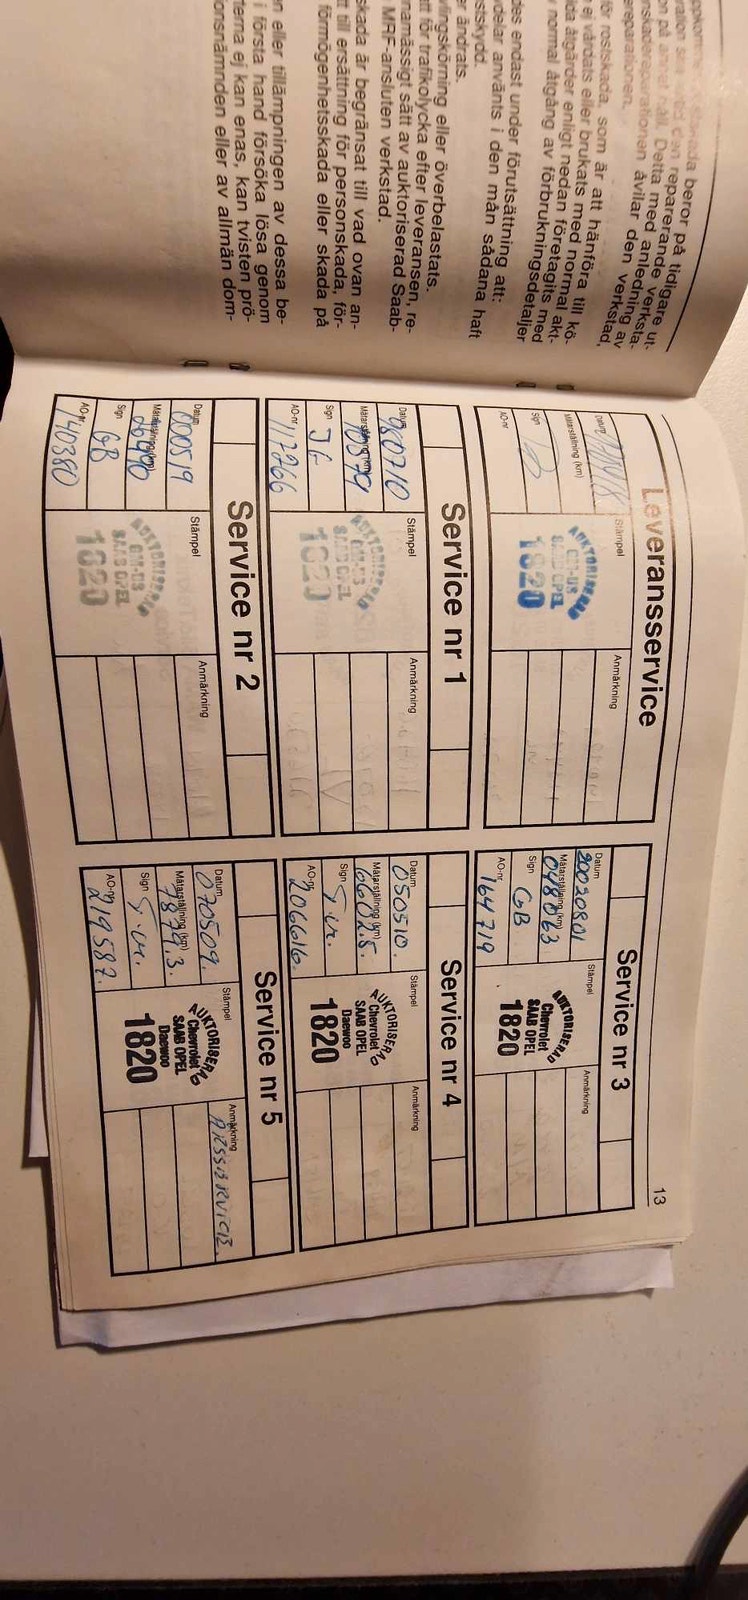 beror på tidigare ut-
reparerande verksta-
på annat håll. Detta med anledning av
åvilar den verkstad,
reparationen.
för rostskada, som är att hänföra till kö-
ej vårdats eller brukats med normal akt-
åtgärder enligt nedan företagits med
normal åtgång av förbrukningsdetaljer
endast under förutsättning att:
använts i den mån sådana haft
ändrats.
eller överbelastats.
för trafikolycka efter leveransen, re-
sätt av auktoriserad Saab-
MRF-ansluten verkstad.
är begränsat till vad ovan an-
till ersättning för personskada, för-
förmögenhetsskada eller skada på
eller tillämpningen av dessa be-
i första hand försöka lösa genom
ej kan enas, kan tvisten prö-
eller av allmän dom-
13
Leveransservice
Datum
Mätarställning (km)
Sign
AO-nr
Stämpel
AUKTORISERAD
GM-US
SAAB OPEL
1820
Anmärkning
Service nr 1
Datum 980710
Mätarställning (km)
Sign J G
AO-nr 117766
Stämpel
AUKTORISERAD
GM-US
SAAB OPEL
1820
Anmärkning
Service nr 2
Datum 000519
Mätarställning (km)
Sign GB
AO-nr 140380
Stämpel
AUKTORISERAD
GM-US
SAAB OPEL
1820
Anmärkning
Service nr 3
Datum 20020801
Mätarställning (km) 048863
Sign GB
AO-nr 164719
Stämpel
AUKTORISERAD
Chevrolet
SAAB OPEL
1820
Anmärkning
Service nr 4
Datum 050510.
Mätarställning (km) 6602.5.
Sign
AO-nr 206616.
Stämpel
AUKTORISERAD
Chevrolet
SAAB OPEL
Daewoo
1820
Anmärkning
Service nr 5
Datum 070509.
Mätarställning (km) 7879.3.
Sign
AO-nr 219587.
Stämpel
AUKTORISERAD
Chevrolet
SAAB OPEL
Daewoo
1820
Anmärkning
ÅRSSERVICE